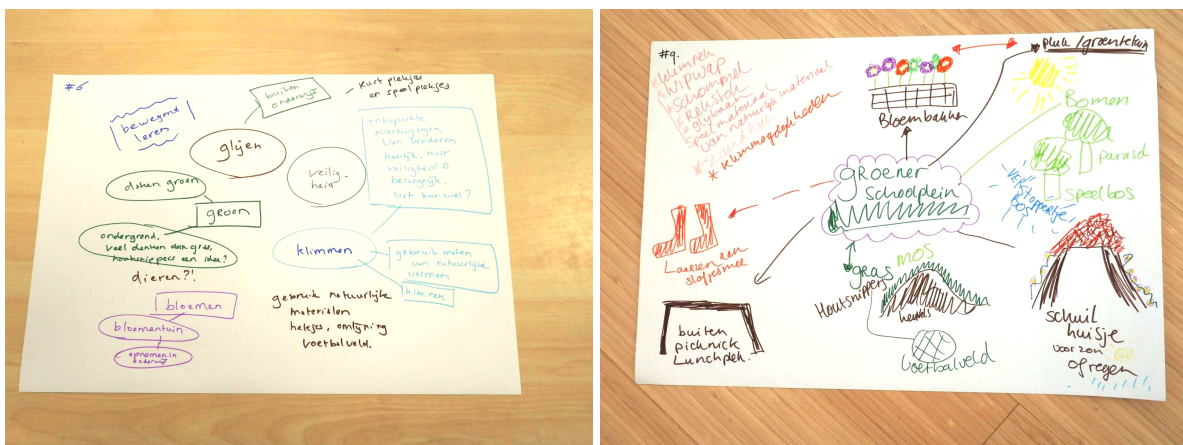 #6
bewegend
leren
buiten
onderwijs
Kust plekjes
en speelplekjes
glijen
veilig
heid
onbeperkte
overtuigingen
van kinderen
heerlijk, maar
veiligheid is
belangrijk.
wat kan wel?
daken groen
groen
ondergrond,
veel denken aan gras,
houtsnippers een idee?
dieren?!
klimmen
gebruik maken
van natuurlijke
vormen
klimrek
bloemen
bloementuin
opnemen in
onderwijs
gebruik natuurlijke
materialen
hekjes, omlijning
voetbalveld.
#9.
* klimrek
* wipwap
* schommel
* Rekstok
* glijbaan
speel materiaal
van natuurlijk materiaal
* klimmogelijkheden
Bloembakken
pluk/groentetuin
Bomen
parasol
speelbos
VERSTOPPERTJE
BOS
groener
schoolplein
Laarzen aan
slofjes mee
buiten
picknick
Lunchplek.
gras
mos
Houtsnippers
heuvels
voetbalveld
schuil
huisje
voor zon
of regen